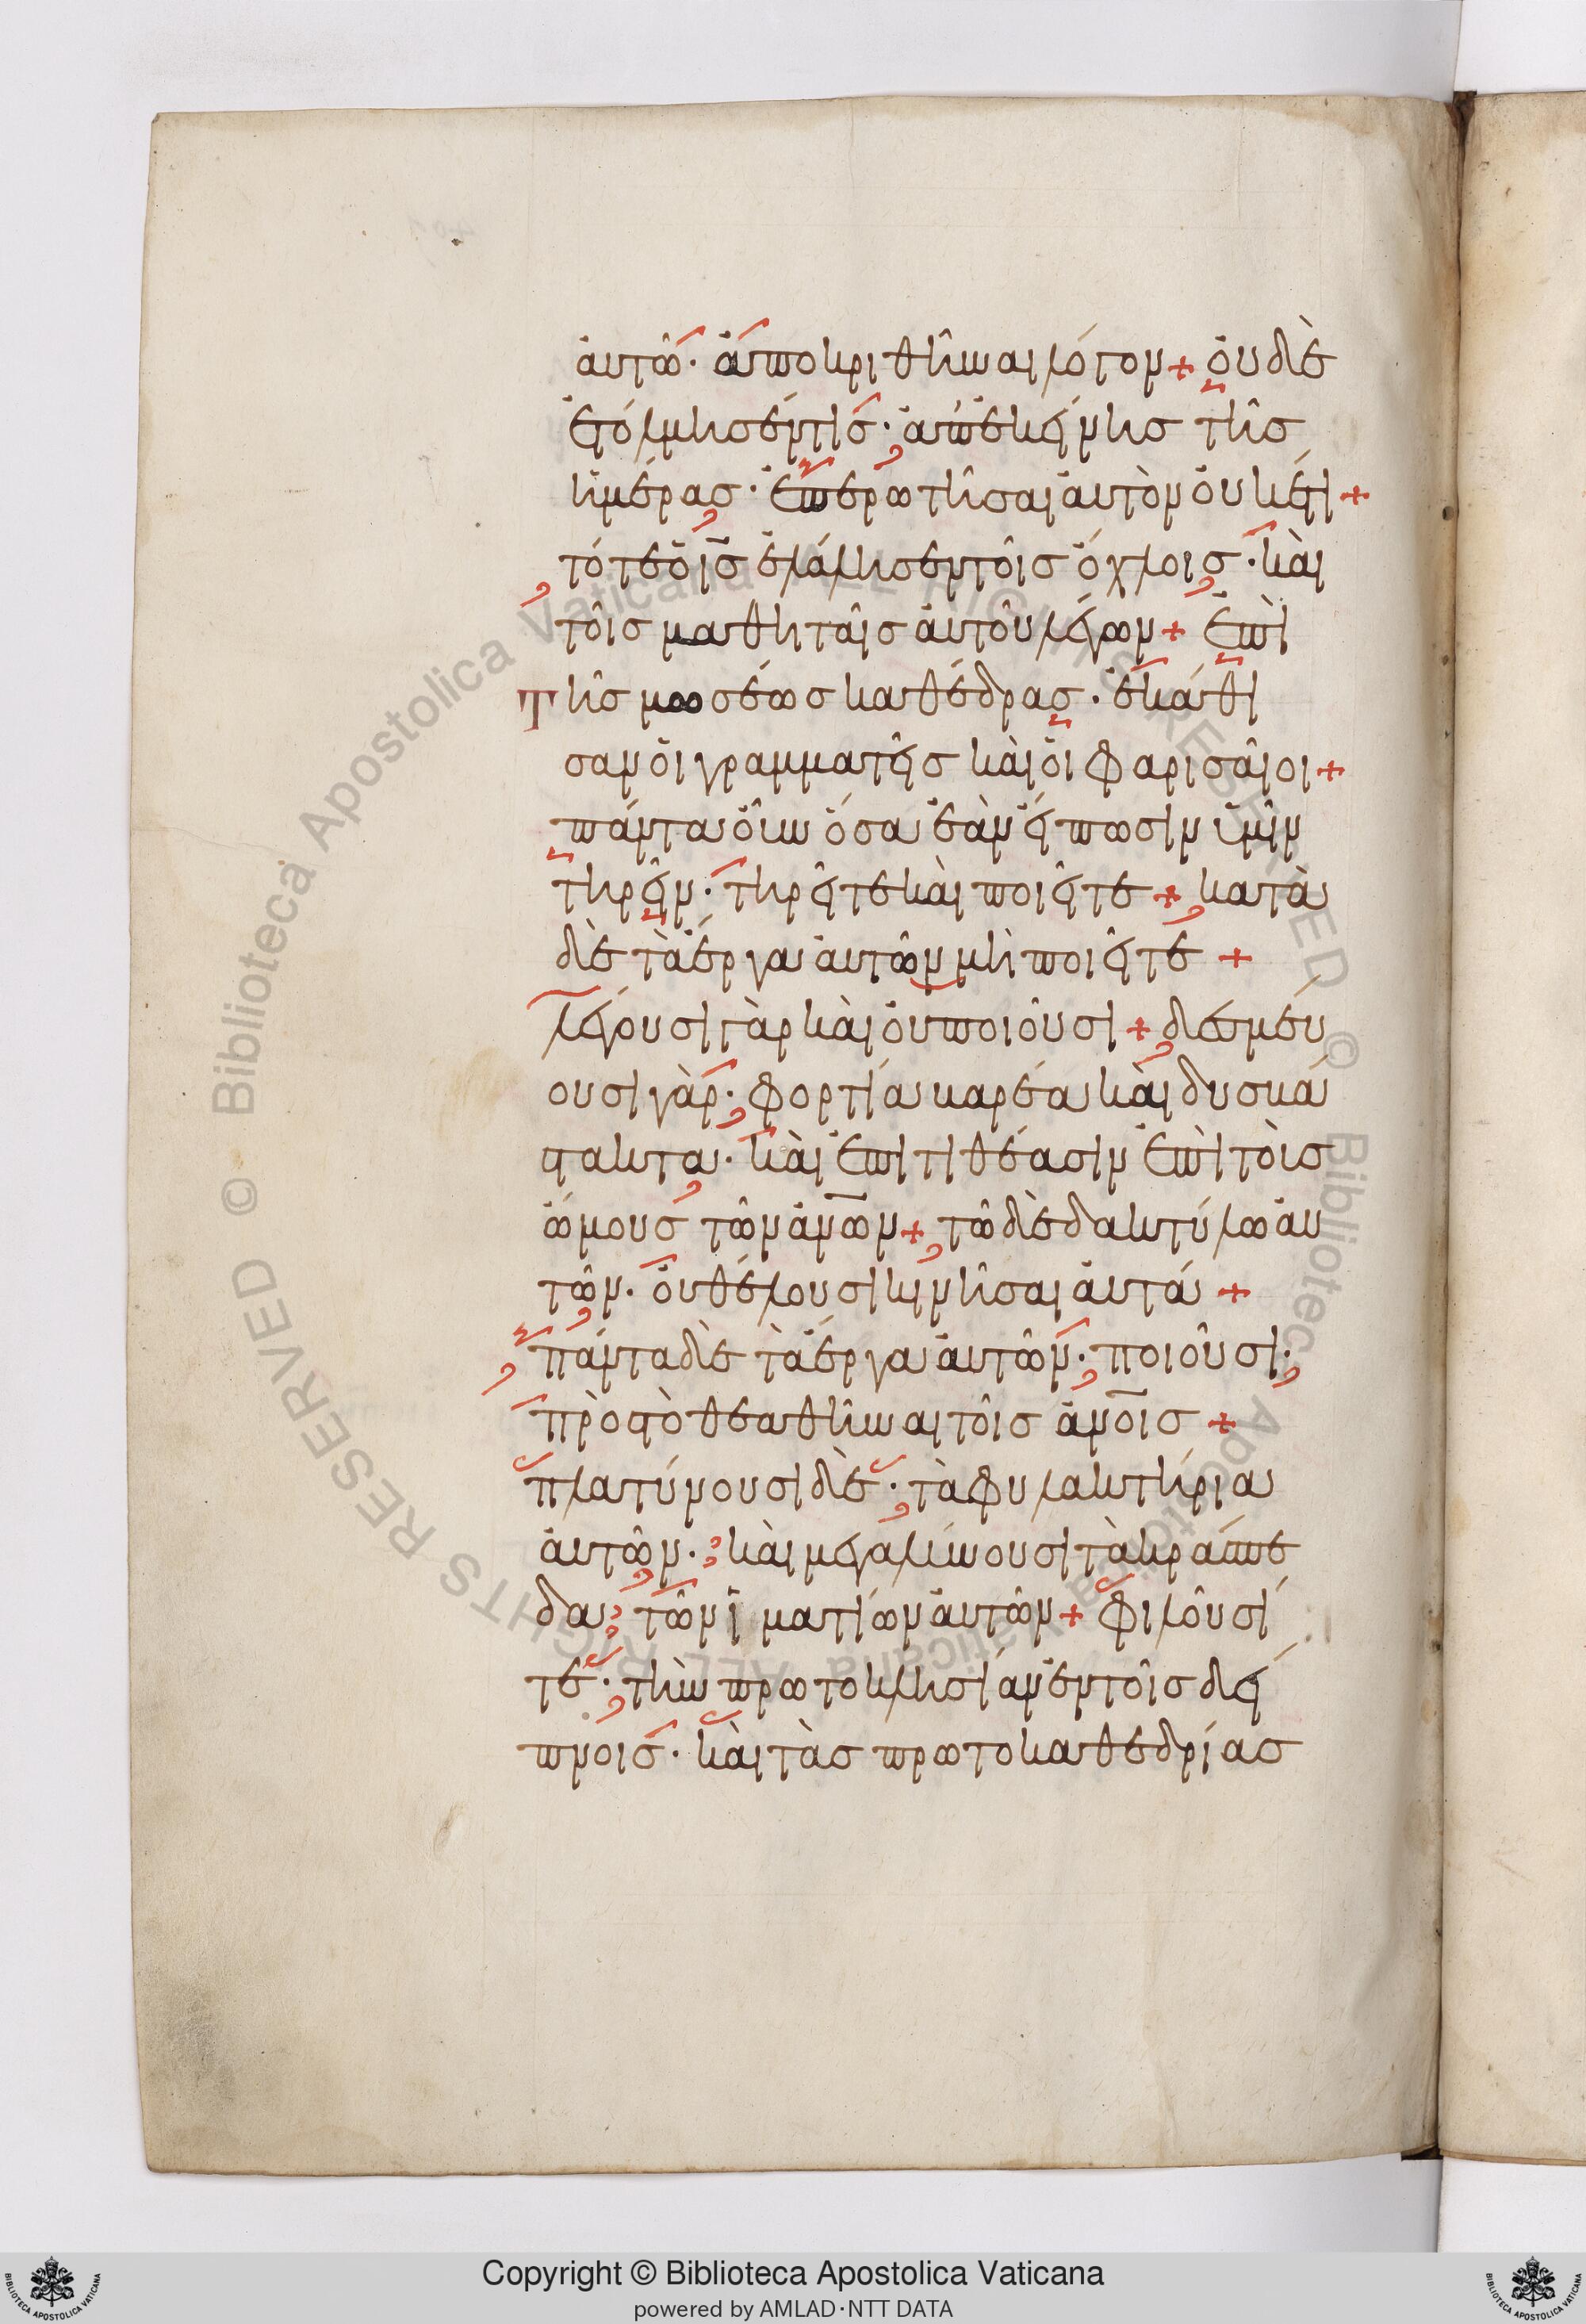 αὐτῶ· ἀποκριθῆναι λόγον + οὐδὲ
ἐτόλμησέν τις· ἀπ' ἐκείνης τῆς
ἡμέρας· ἐπερωτῆσαι αὐτὸν οὐκέτι +
τότε ὁ ις ἐλάλησεν τοῖς ὄχλοις· καὶ
τοῖς μαθηταῖς αὐτοῦ λέγων + ἐπὶ
τῆς μωσέως καθέδρας· ἐκάθι
σαν οἱ γραμματεῖς καὶ οἱ φαρισαῖοι +
πάντα οὖν ὅσα ἐὰν εἴπωσιν ὑμῖν
τηρεῖν· τηρεῖτε καὶ ποιεῖτε + κατὰ
δὲ τὰ ἔργα αὐτῶν μὴ ποιεῖτε +
λέγουσι γὰρ καὶ οὐ ποιοῦσι + δεσμεύ
ουσι γὰρ· φορτία βαρέα καὶ δυσβά
στακτα· καὶ ἐπιτιθέασιν ἐπὶ τοὺς
ὤμους τῶν ἀνων + τῶ δὲ δακτύλω αὐ
τῶν· οὐ θέλουσι κινῆσαι αὐτά +
πάντα δὲ τὰ ἔργα αὐτῶν· ποιοῦσι·
πρὸς τὸ θεαθῆναι τοῖς ἀνοις +
πλατύνουσι δὲ· τὰ φυλακτήρια
αὐτῶν· καὶ μεγαλύνουσι τὰ κράσπε
δα τῶν ἱματίων αὐτῶν + φιλοῦσί
τε· τὴν πρωτοκλησίαν ἐν τοῖς δεί
πνοις· καὶ τὰς πρωτοκαθεδρίας
Copyright © Biblioteca Apostolica Vaticana
powered by AMLAD·NTT DATA
© Biblioteca Apostolica Vaticana ALL RIGHTS RESERVED © Biblioteca Apostolica Vaticana ALL RIGHTS RESERVED